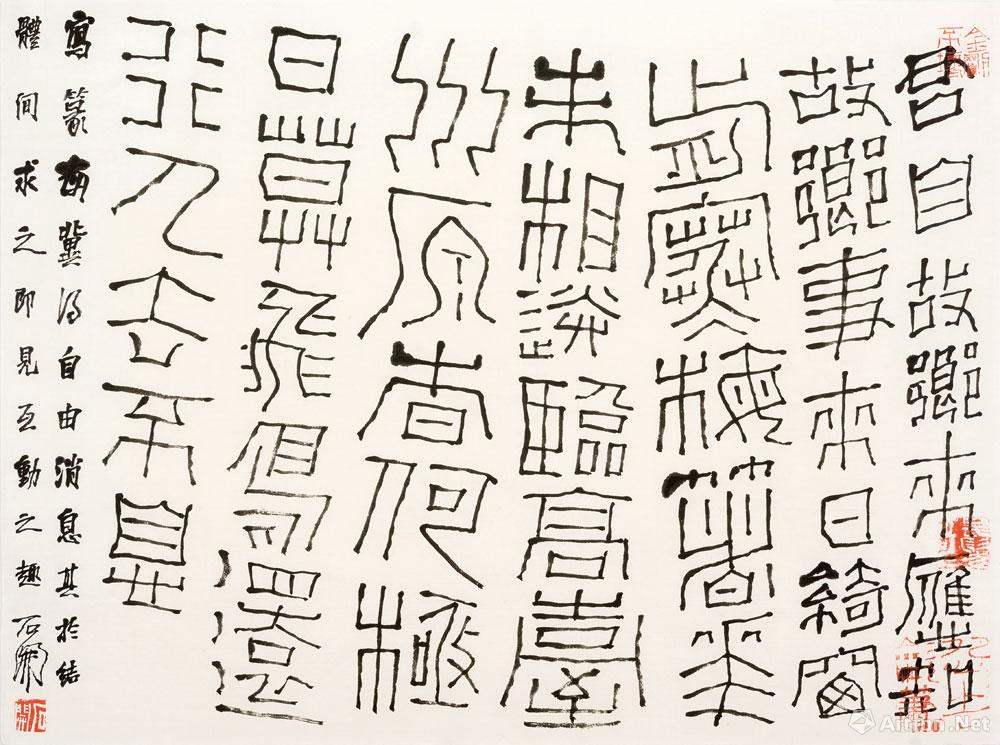 君自故鄉來應知
故鄉事來日綺窗
前寒梅著花
未相送臨高臺
川原杳何極
日暮飛鳥還
行人去不息
寫篆每冀得自由消息其於結
體間求之即見互動之趣石開
Artron.Net